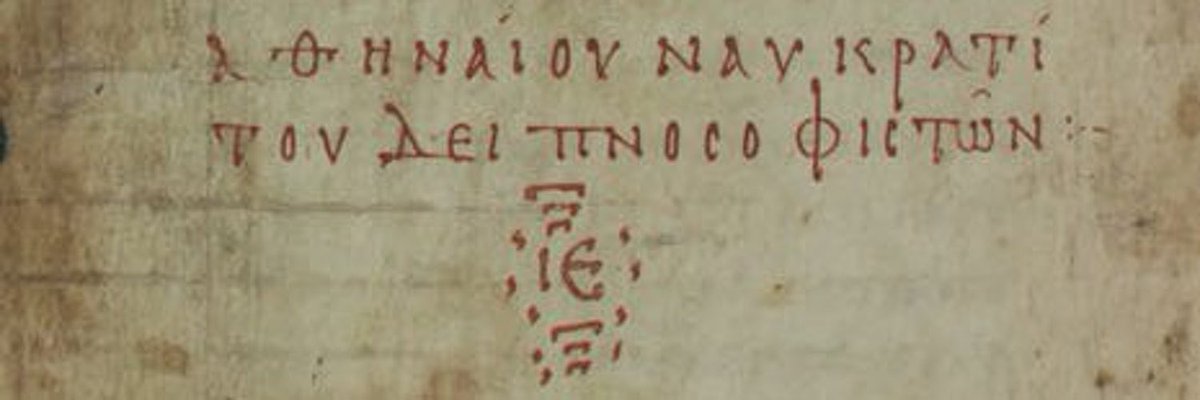 ἈΘΗΝΑΊΟΥ ΝΑΥΚΡΑΤΊ
ΤΟΥ ΔΕΙΠΝΟΣΟΦΙΣΤΩ͂Ν :-
ΙΕ